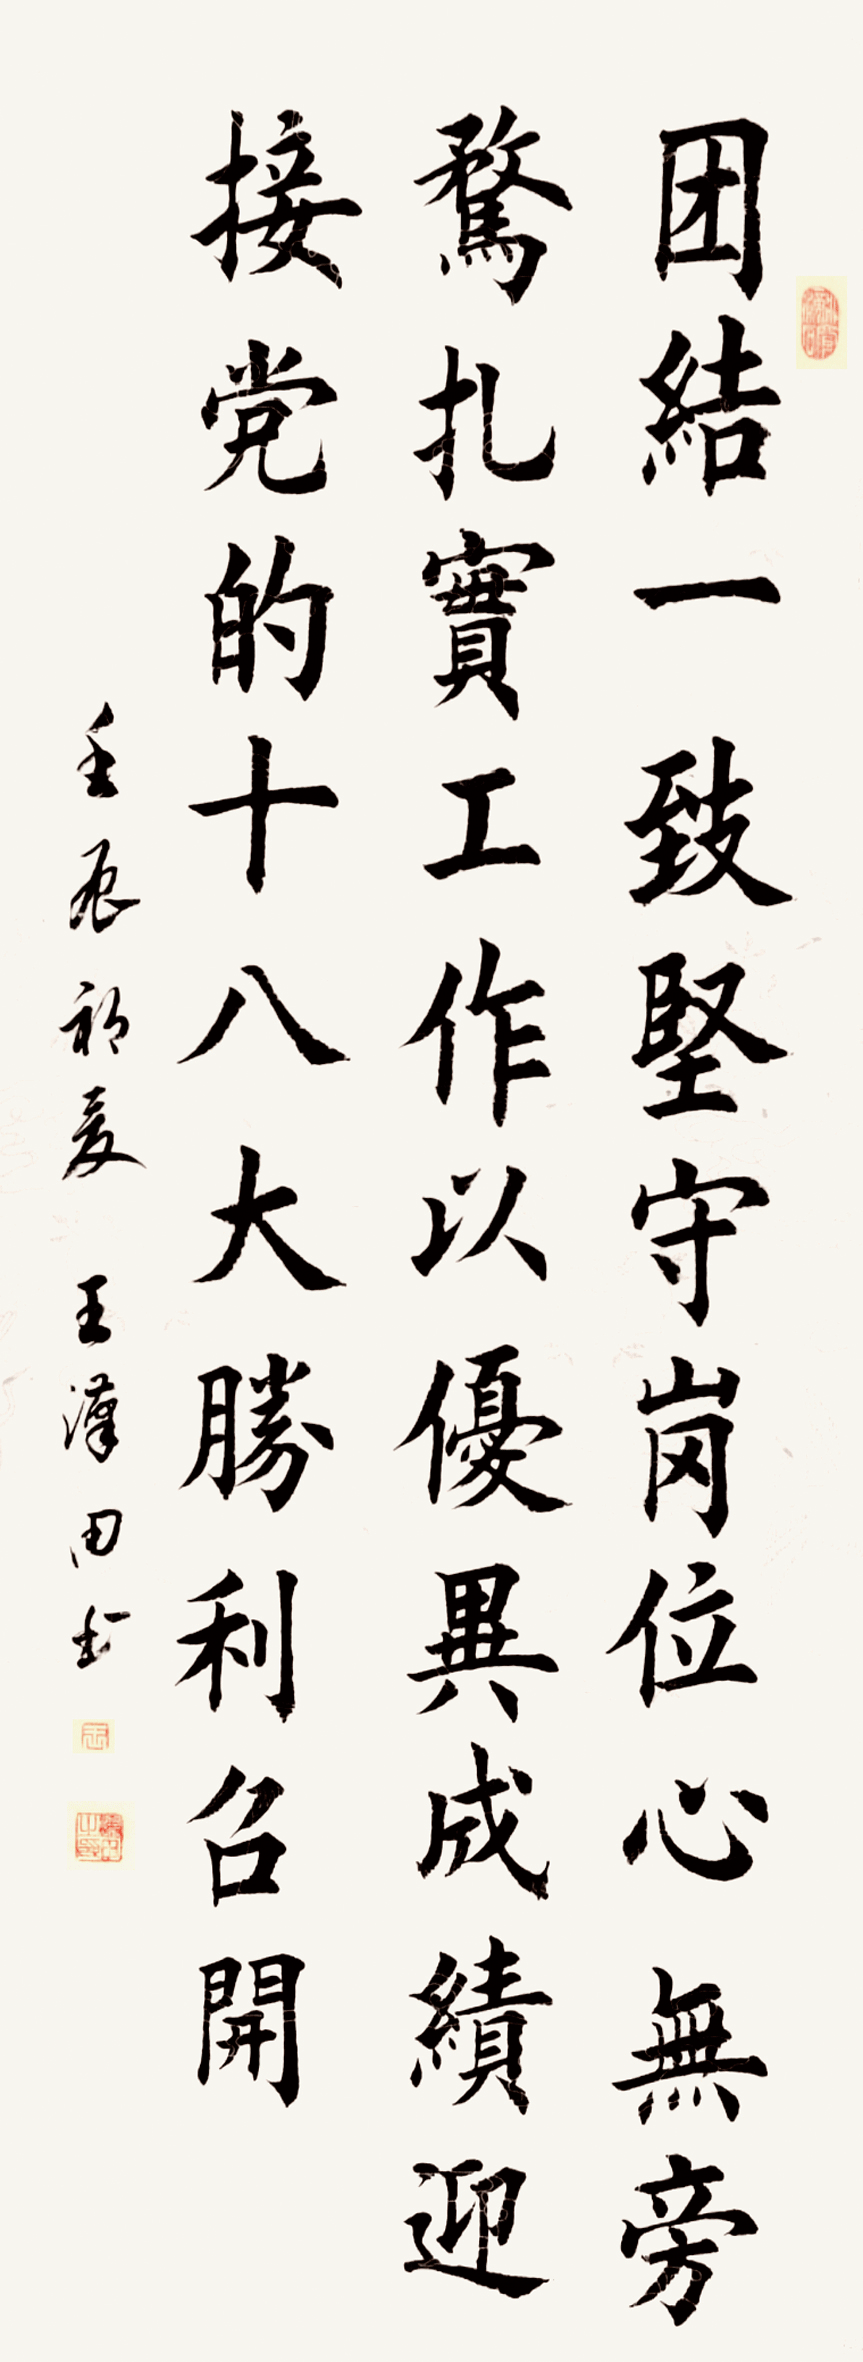 团結一致堅守岗位心無旁
騖扎實工作以優異成績迎
接党的十八大勝利召開
壬辰初夏 王漢田书